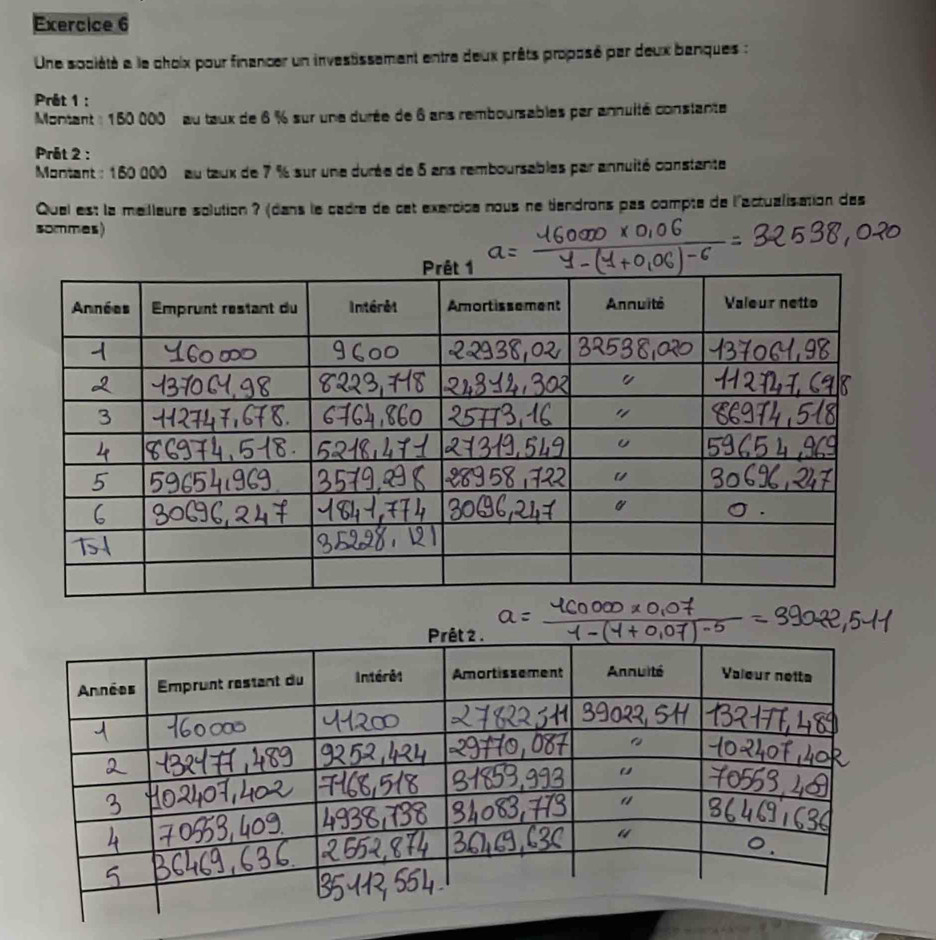 Exercice 6
Une société a le choix pour financer un investissement entre deux prêts proposé par deux banques :
Prêt 1 :
Montant : 160 000 au taux de 6 % sur une durée de 6 ans remboursables par annuité constante
Prêt 2 :
Montant : 160 000 au taux de 7 % sur une durée de 5 ans remboursables par annuité constante
Quel est la meilleure solution ? (dans le cadre de cet exercice nous ne tiendrons pas compte de l'actualisation des
sommes)
a = 160000 x 0,06 / 1-(1+0,06)-6 = 32538,020
Prêt 1
Années Emprunt restant du Intérêt Amortissement Annuité Valeur nette
1 160000 9600 22938,02 32538,020 137061,98
2 137061,98 8223,718 24314,302 " 112747,678
3 112747,678. 6764,860 25773,16 " 86974,518
4 86974,518. 5218,471 27319,549 " 59654,969
5 59654,969 3579,298 28958,722 " 30696,247
6 30696,247 1841,774 30696,247 " 0.
Tot 35228,121
a = 160000 x 0,07 / 1-(1+0,07)-5 = 39022,511
Prêt 2.
Années Emprunt restant du Intérêt Amortissement Annuité Valeur nette
1 160000 11200 27822,511 39022,511 132177,489
2 132177,489 9252,424 29770,087 " 102407,402
3 102407,402 7168,518 31853,993 " 70553,409
4 70553,409. 4938,738 34083,773 " 36469,636
5 36469,636. 2552,874 36469,636 " 0.
35112,554.